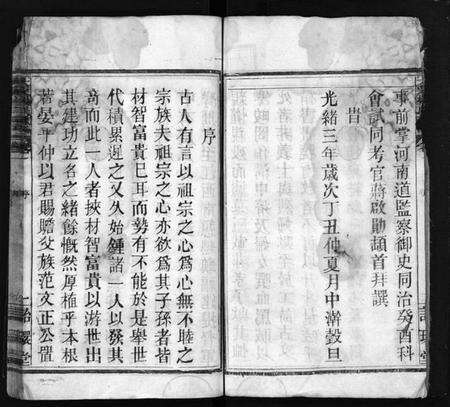 事前掌河南道監察御史同治癸酉科
會試同考官蔣啟勛頓首拜譔
皆
光緒三年歲次丁丑仲夏月中澣穀旦
序
古人有言以祖宗之心爲心無不睦之
宗族夫祖宗之心亦欲爲其子孫者皆
材智富貴已耳而勢有不能於是舉世
代積累遲之又久始鍾諸一人以發其
奇而此一人者挾材智富貴以游世出
其建功立名之緒餘慨然厚椎乎本根
若晏平仲以君賜贍父族范文正公置